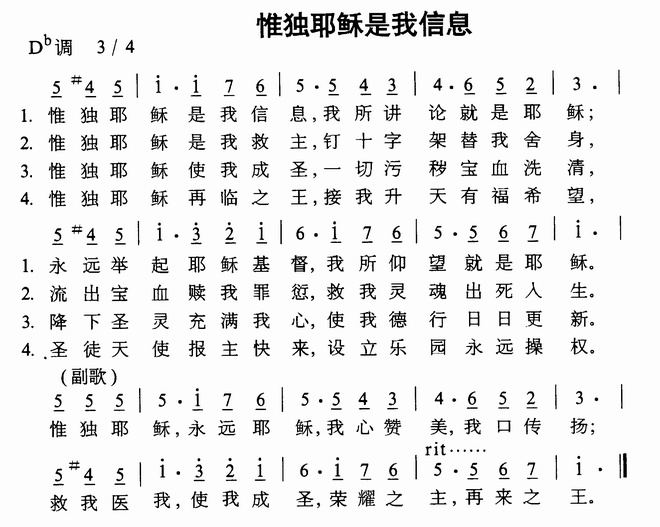 惟独耶稣是我信息
D♭调 3/4
5 #4 5 | i · i 7 6 | 5 · 5 4 3 | 4 · 6 5 2 | 3 · |
1. 惟独耶 稣是我信 息,我所讲 论就是耶 稣;
2. 惟独耶 稣是我救 主,钉十字 架替我舍 身,
3. 惟独耶 稣使我成 圣,一切污 秽宝血洗 清,
4. 惟独耶 稣再临之 王,接我升 天有福希 望,
5 #4 5 | i · 3 2 i | 6 · i 7 6 | 5 · 5 6 7 | i · |
1. 永远举 起耶稣基 督,我所仰 望就是耶 稣。
2. 流出宝 血赎我罪 愆,救我灵 魂出死入 生。
3. 降下圣 灵充满我 心,使我德 行日日更 新。
4. 圣徒天 使报主快 来,设立乐 园永远操 权。
(副歌)
5 5 5 | 5 · i 7 6 | 5 · 5 4 3 | 4 · 6 5 2 | 3 · |
惟独耶 稣,永远耶 稣,我心赞 美,我口传 扬;
rit······
5 #4 5 | i · 3 2 i | 6 · i 7 6 | 5 · 5 6 7 | i · ||
救我医 我,使我成 圣,荣耀之 主,再来之 王。